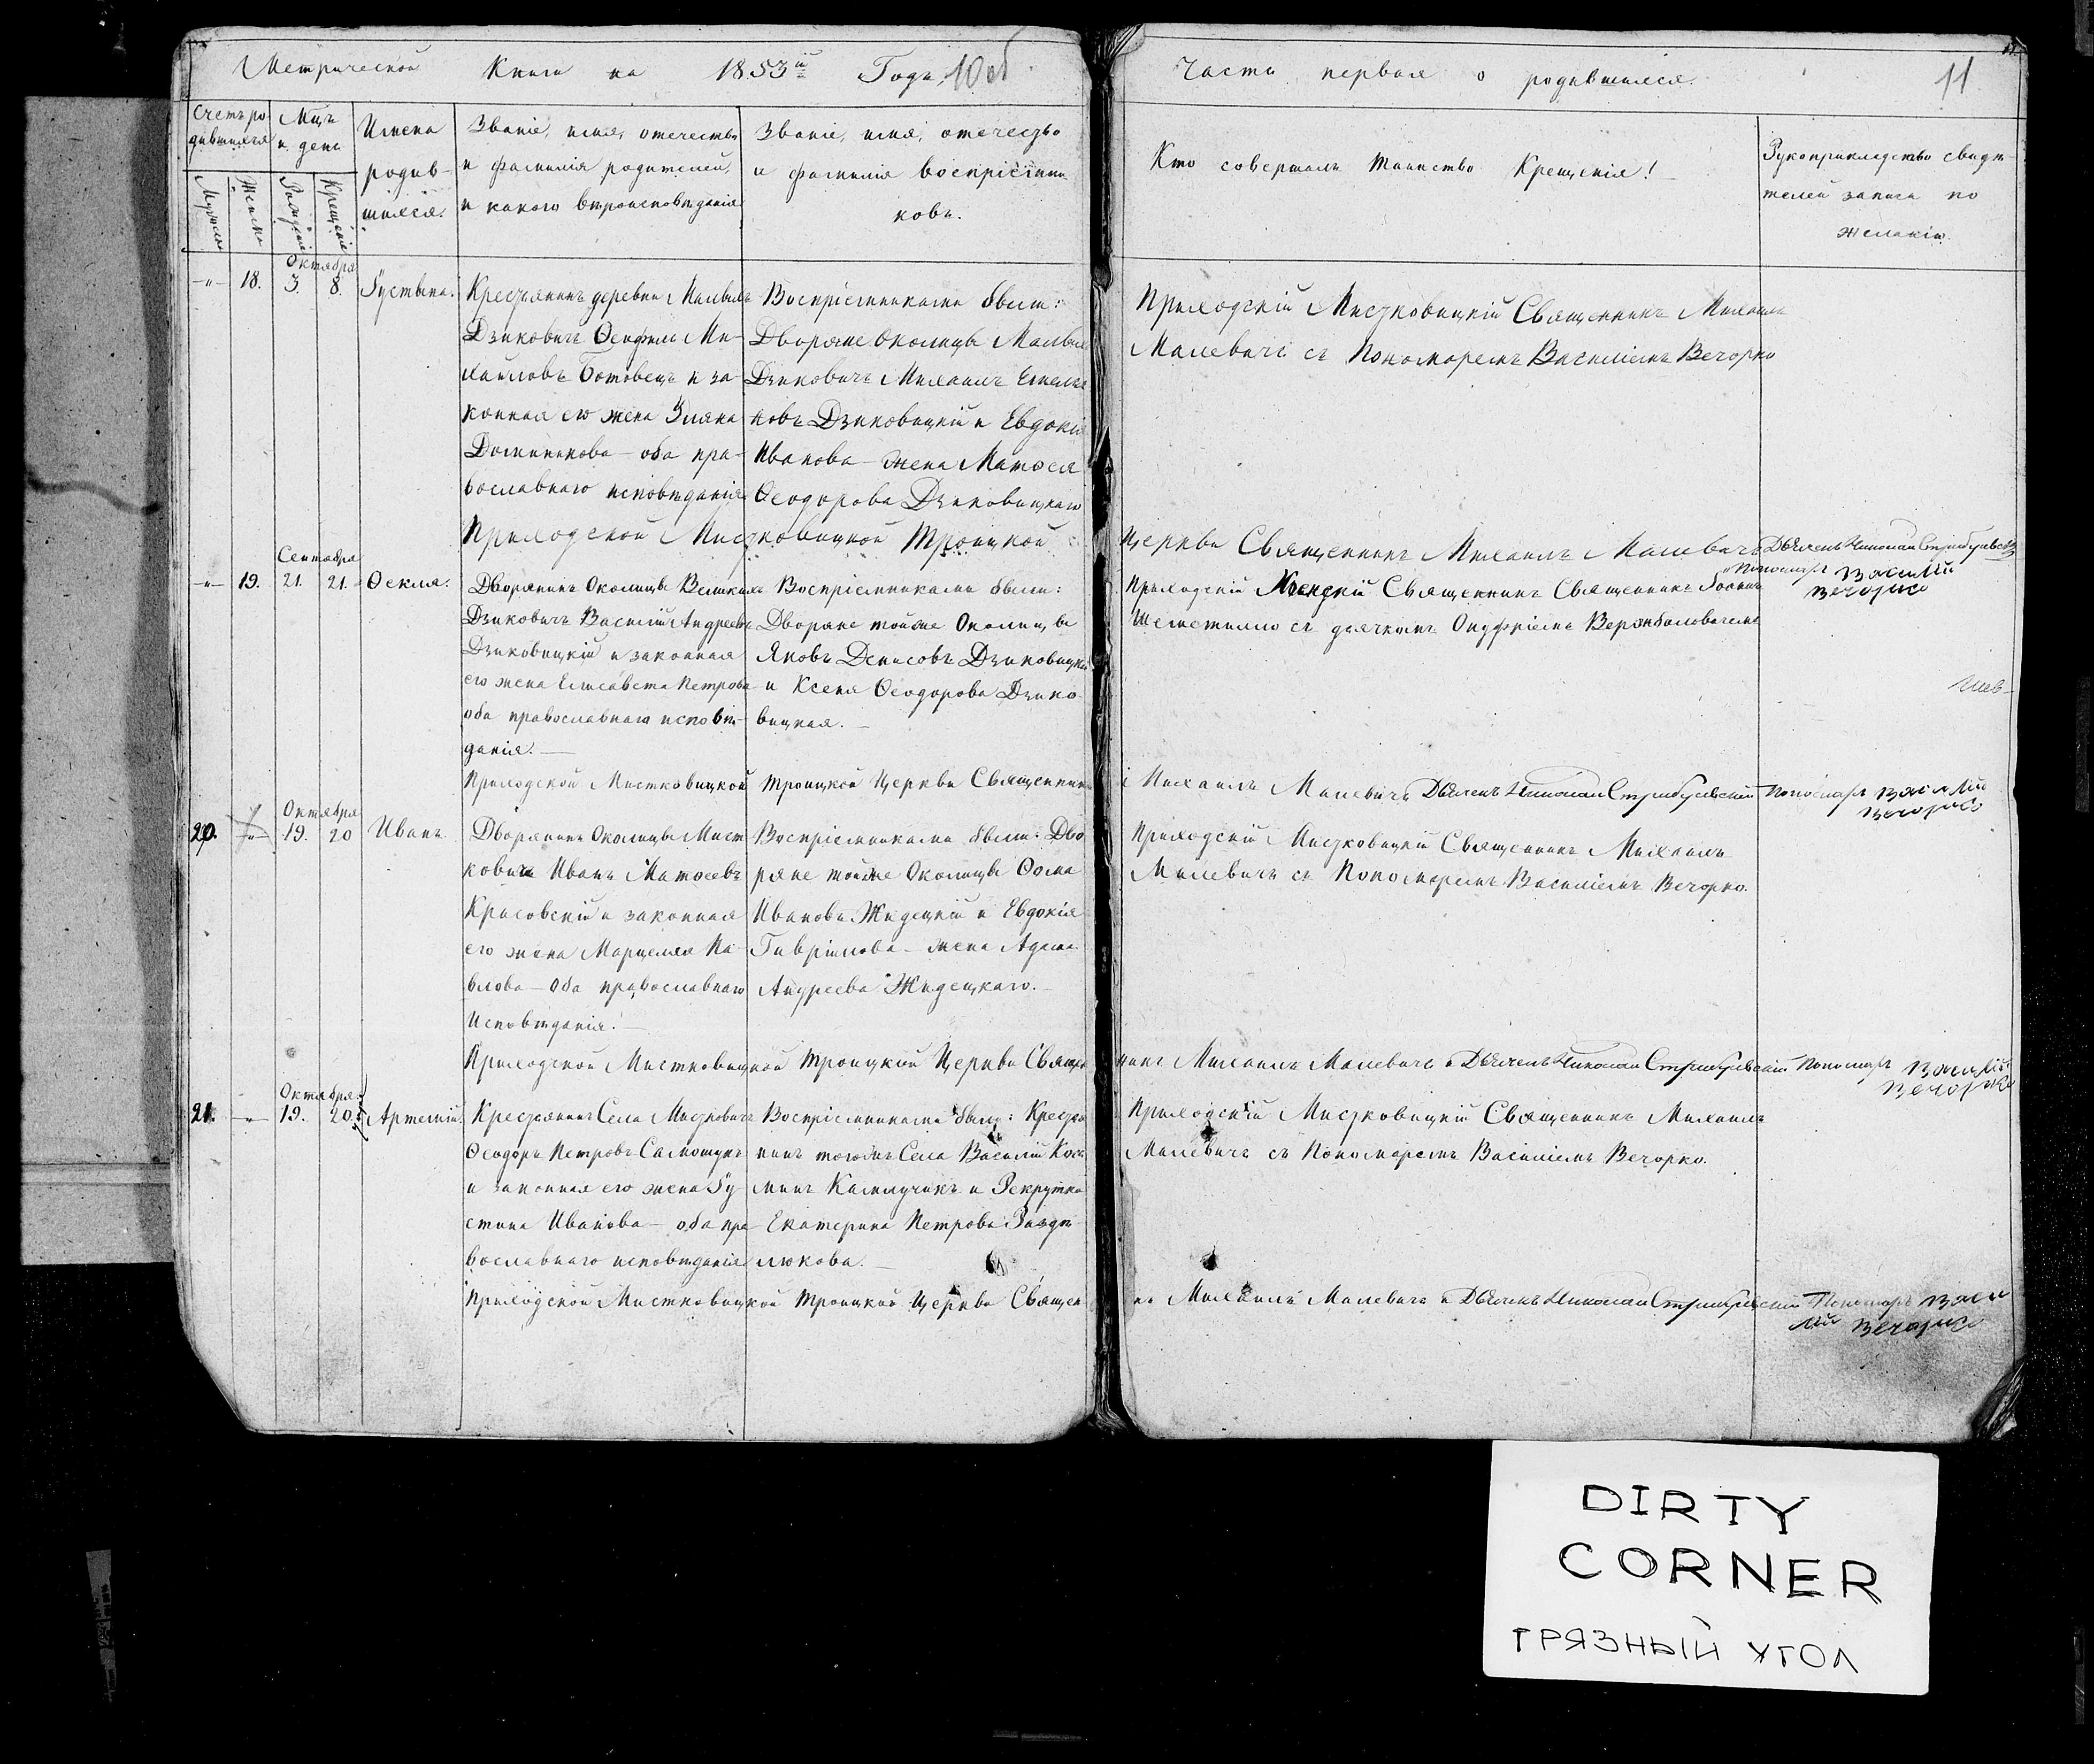 Метрической Книги на 1853й Годъ. 10об
Части первая о родившихся. 11
Счетъ ро
дившихся
Мужеска
Женска
Мцъ
и день
Рожденія
Крещенія
Имена
родив-
шихся.
Званіе, имя, отечество
и фамилія родителей,
и какого вѣроисповѣданія
Званіе, имя, отечество
и фамилія воспріємни
ковъ.
Кто совершалъ таинство Крещенія!
Рукоприкладство свидѣ-
телей записи по
желанію
Октября
-"- 18. 3. 8. Густына.
Крестьянинъ деревни Малыхъ
Дзиковичъ Ми-
хаиловъ Ботовецъ и за-
конная его жена Уляна
Доминикова - оба пра-
вославнаго исповѣданія
Воспріемниками были:
Дворяне Околицы Малыхъ
Дзиковичъ Михаилъ
новъ Дзиковицкій и Евдокія
Иванова - жена Матѳея
Ѳеодорова Дзиковицкаго
Приходскій Мистковицкій Священникъ Михаилъ
Малевичъ съ Пономаремъ Василіемъ Вечорко
Приходской Мистковицкой Троицкой Церкви Священникъ Михаилъ Малевичъ Дьячекъ Николай
Пономарь Василій
Вечорко
Сентября
-"- 19. 21. 21. Ѳекла.
Дворянинъ Околицы Великихъ
Дзиковичъ Василій Андреевъ
Дзиковицкій и законная
его жена Елисавета Петрова
оба православнаго исповѣ-
данія.
Воспріемниками были:
Дворяне тойже Околицы
Яковъ Денисовъ Дзиковицкій
и Ксенія Ѳеодорова Дзико-
вицкая.
Приходскій Священникъ Священникъ Іоаннъ
съ дьячкомъ Онуфріемъ
Приходской Мистковицкой Троицкой Церкви Священникъ Михаилъ Малевичъ Дьячекъ Николай Пономарь Василій
Вечорко
Октября
20. -"- 19. 20 Иванъ
Дворянинъ Околицы Мист
ковичъ Иванъ Матѳеевъ
Красовскій и законная
его жена Марцелля Па-
влова - оба православнаго
Исповѣданія.
Воспріемниками были: Дво
ряне тойже Околицы Ѳома
Ивановъ Жидецкій и Евдокія
Гавріилова - жена Адама
Андреева Жидецкаго.
Приходскій Мистковицкій Священникъ Михаилъ
Малевичъ съ Пономаремъ Василіемъ Вечорко.
Приходской Мистковицкой Троицкой Церкви Священникъ Михаилъ Малевичъ Дьячекъ Николай Пономарь Василій
Вечорко
Октября
21. -"- 19. 20. Артемій.
Крестьянинъ Села Мистковичъ
Ѳеодоръ Петровъ
и законная его жена Гу-
стина Иванова - оба пра-
вославнаго исповѣданія
Воспріемниками были: Крестья
нинъ тогожъ Села Василій Кось
минъ и Рекрутка
Екатерина Петрова
люкова.
Приходскій Мистковицкій Священникъ Михаилъ
Малевичъ съ Пономаремъ Василіемъ Вечорко.
Приходской Мистковицкой Троицкой Церкви Священ Михаилъ Малевичъ Дьячекъ Николай Пономарь Васи
лій Вечорко
DIRTY
CORNER
ГРЯЗНЫЙ УГОЛ